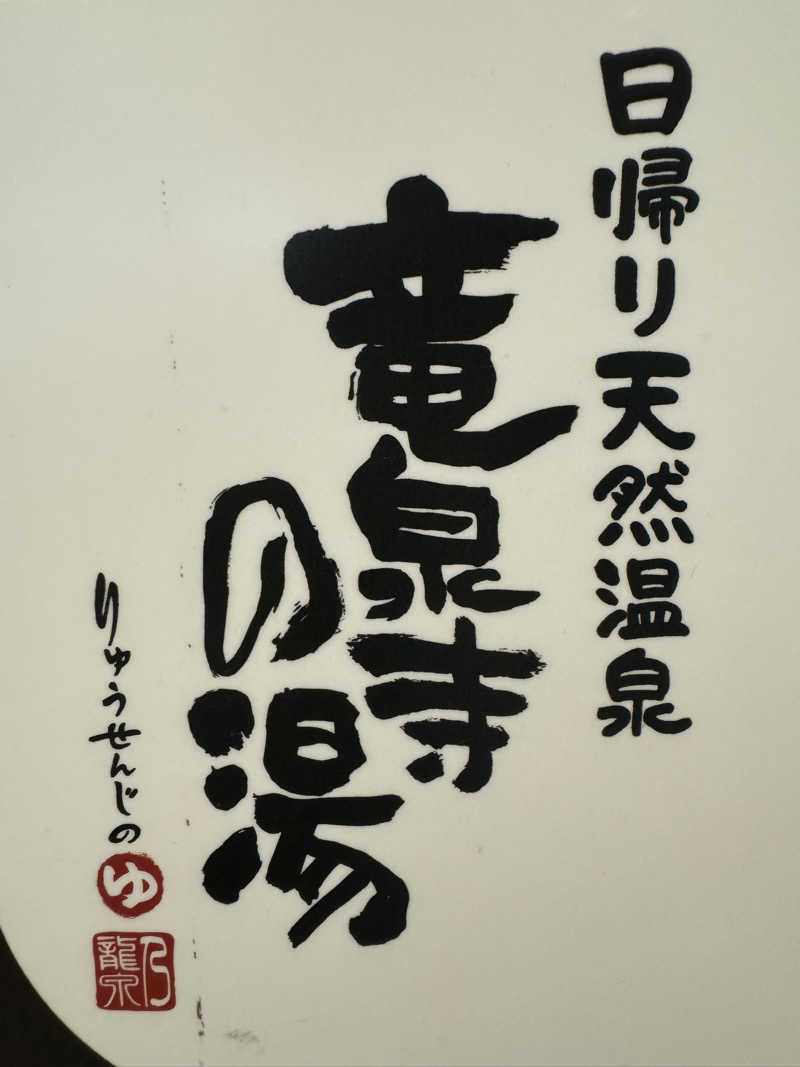 日帰り天然温泉
竜泉寺
の湯
りゅうせんじの
ゆ
乃
龍泉